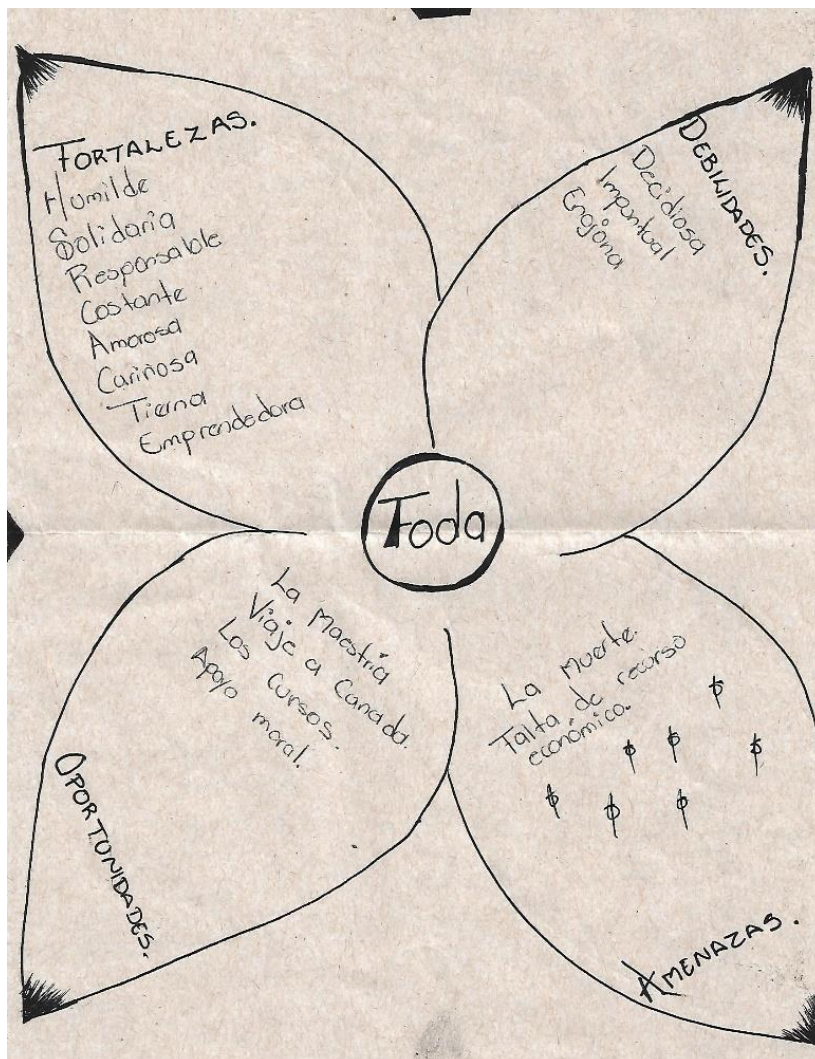 FORTALEZAS.
Humilde
Solidaria
Responsable
Costante
Amorosa
Cariñosa
Tierna
Emprendedora
DEBILIDADES.
Decidiosa
Impuntual
Enojona
Foda
La Maestría
Viaje a Canada.
Los Cursos.
Apoyo moral.
OPORTUNIDADES.
La Muerte.
Falta de recurso
económico.
AMENAZAS.